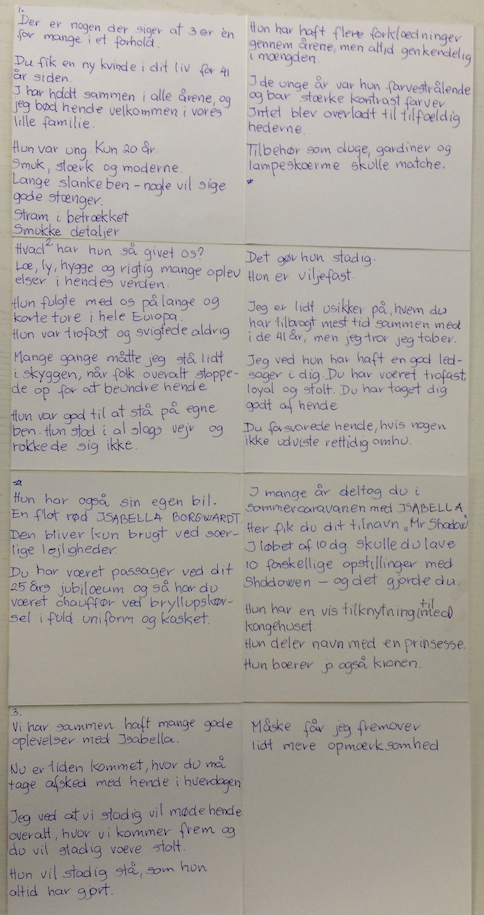 1.
Der er nogen der siger at 3 er én
for mange i et forhold.
Du fik en ny kvinde i dit liv for 41
år siden.
I har holdt sammen i alle årene, og
jeg bød hende velkommen i vores
lille familie.
Hun var ung kun 20 år
Smuk, stærk og moderne.
Lange slanke ben - nogle vil sige
gode stænger.
Stram i betrækket
Smukke detaljer
Hun har haft flere forklædninger
gennem årene, men altid genkendelig
i mængden.
I de unge år var hun farvestrålende
og bar stærke kontrast farver
Intet blev overladt til tilfældig
hederne.
Tilbehør som duge, gardiner og
lampeskærme skulle matche.
*
2
Hvad har hun så givet os?
Læ, ly, hygge og rigtig mange oplev
elser i hendes verden.
Hun fulgte med os på lange og
korte ture i hele Europa.
Hun var trofast og svigtede aldrig
Mange gange måtte jeg stå lidt
i skyggen, når folk overalt stoppe-
de op for at beundre hende
Hun var god til at stå på egne
ben. Hun stod i al slags vejr og
rokkede sig ikke.
Det gør hun stadig.
Hun er viljefast.
Jeg er lidt usikker på, hvem du
har tilbragt mest tid sammen med
i de 41 år, men jeg tror jeg taber.
Jeg ved hun har haft en god led-
sager i dig. Du har været trofast,
loyal og stolt. Du har taget dig
godt af hende
Du forsvarede hende, hvis nogen
ikke udviste rettidig omhu.
*
Hun har også sin egen bil.
En flot rød ISABELLA BORGWARDT
Den bliver kun brugt ved sær-
lige lejligheder.
Du har været passager ved dit
25 års jubilæum og så har du
været chauffør ved bryllupskør-
sel i fuld uniform og kasket.
I mange år deltog du i
sommercaravanen med ISABELLA,
Her fik du dit tilnavn "Mr Shadow
I løbet af 10 dg. skulle du lave
10 forskellige opstillinger med
Shadowen - og det gjorde du.
Hun har en vis tilknytning til (med)
kongehuset.
Hun deler navn med en prinsesse.
Hun bærer jo også kronen.
3.
Vi har sammen haft mange gode
oplevelser med Isabella.
Nu er tiden kommet, hvor du må
tage afsked med hende i hverdagen
Jeg ved at vi stadig vil møde hende
overalt, hvor vi kommer frem og
du vil stadig være stolt.
Hun vil stadig stå, som hun
altid har gjort.
Måske får jeg fremover
lidt mere opmærksomhed